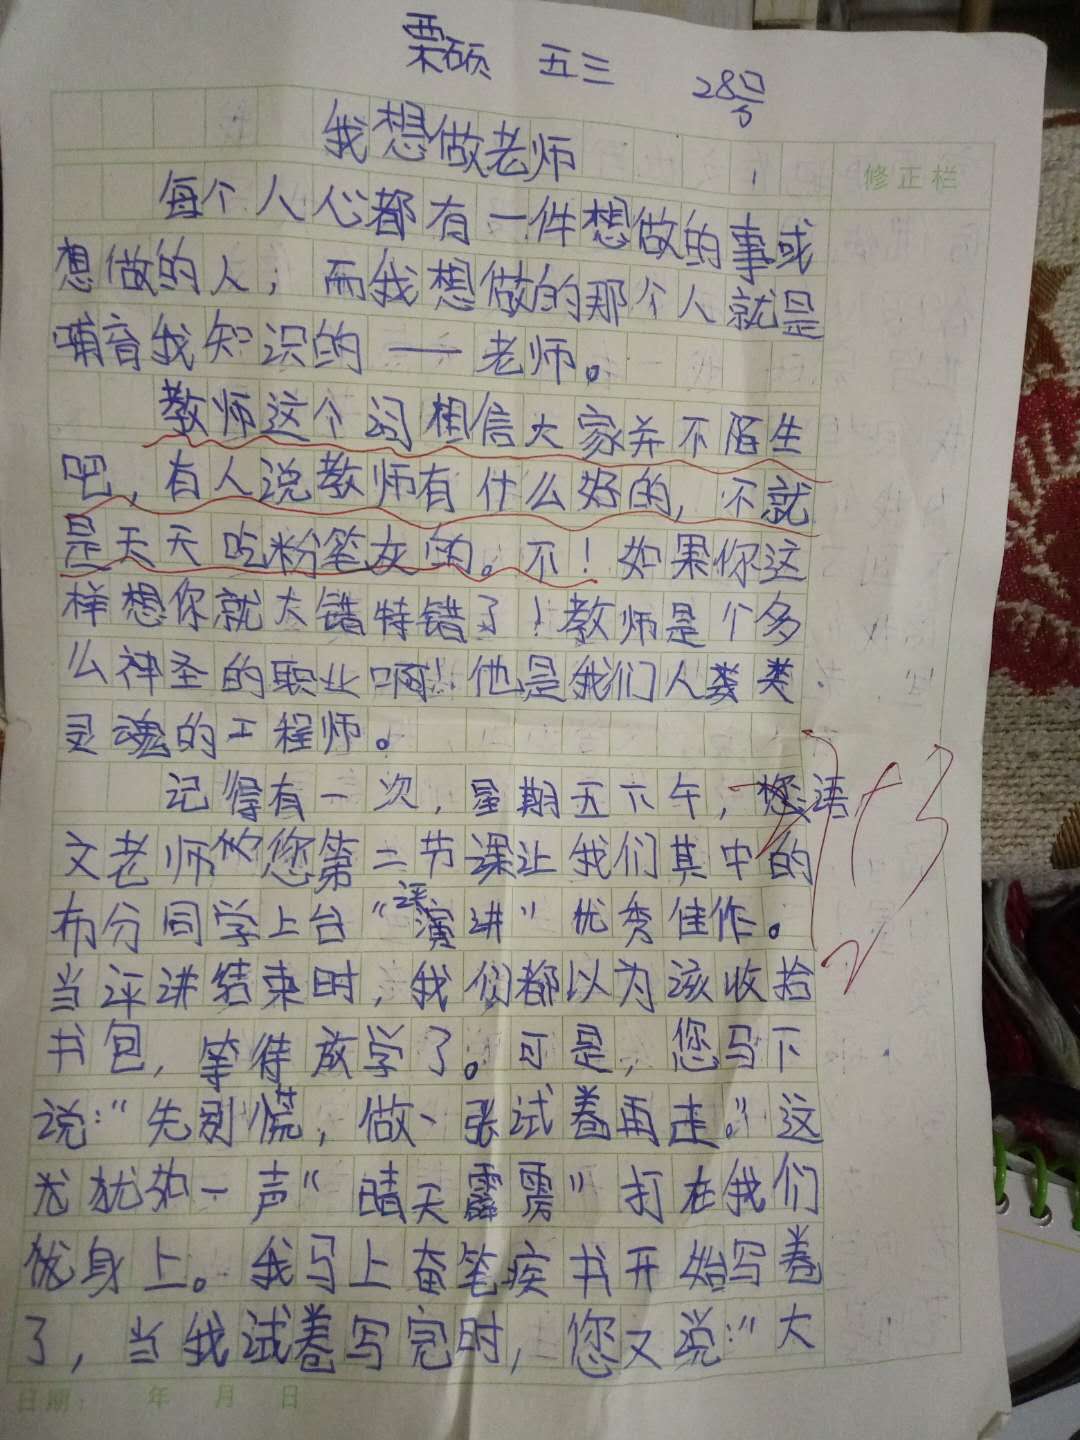 栗硕 五三 28号
我想做老师
修正栏
每个人心都有一件想做的事或
想做的人，而我想做的那个人就是
哺育我知识的——老师。
教师这个词相信大家并不陌生
吧，有人说教师有什么好的，不就
是天天吃粉笔灰的。不！如果你这
样想你就大错特错了！教师是个多
么神圣的职业啊！他是我们人类
灵魂的工程师。
记得有一次，星期五下午，语
文老师的您第二节课让我们其中的
布分同学上台“评讲”优秀佳作。
当评讲结束时，我们都以为该收拾
书包，等待放学了。可是，您马下
说：“先别慌，做一张试卷再走。”这
犹如一声“晴天霹雳”打在我们
身上。我马上奋笔疾书开始写卷
了，当我试卷写完时，您又说：“大
日期： 年 月 日